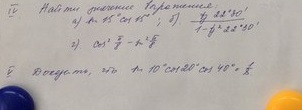 IV Найти значение выражения:
а) sin 15° cos 15°; б) tg 22°30' / 1 - tg² 22°30'
в) cos² π/8 - sin² π/8
V Доказать, что sin 10° cos 20° cos 40° = 1/8